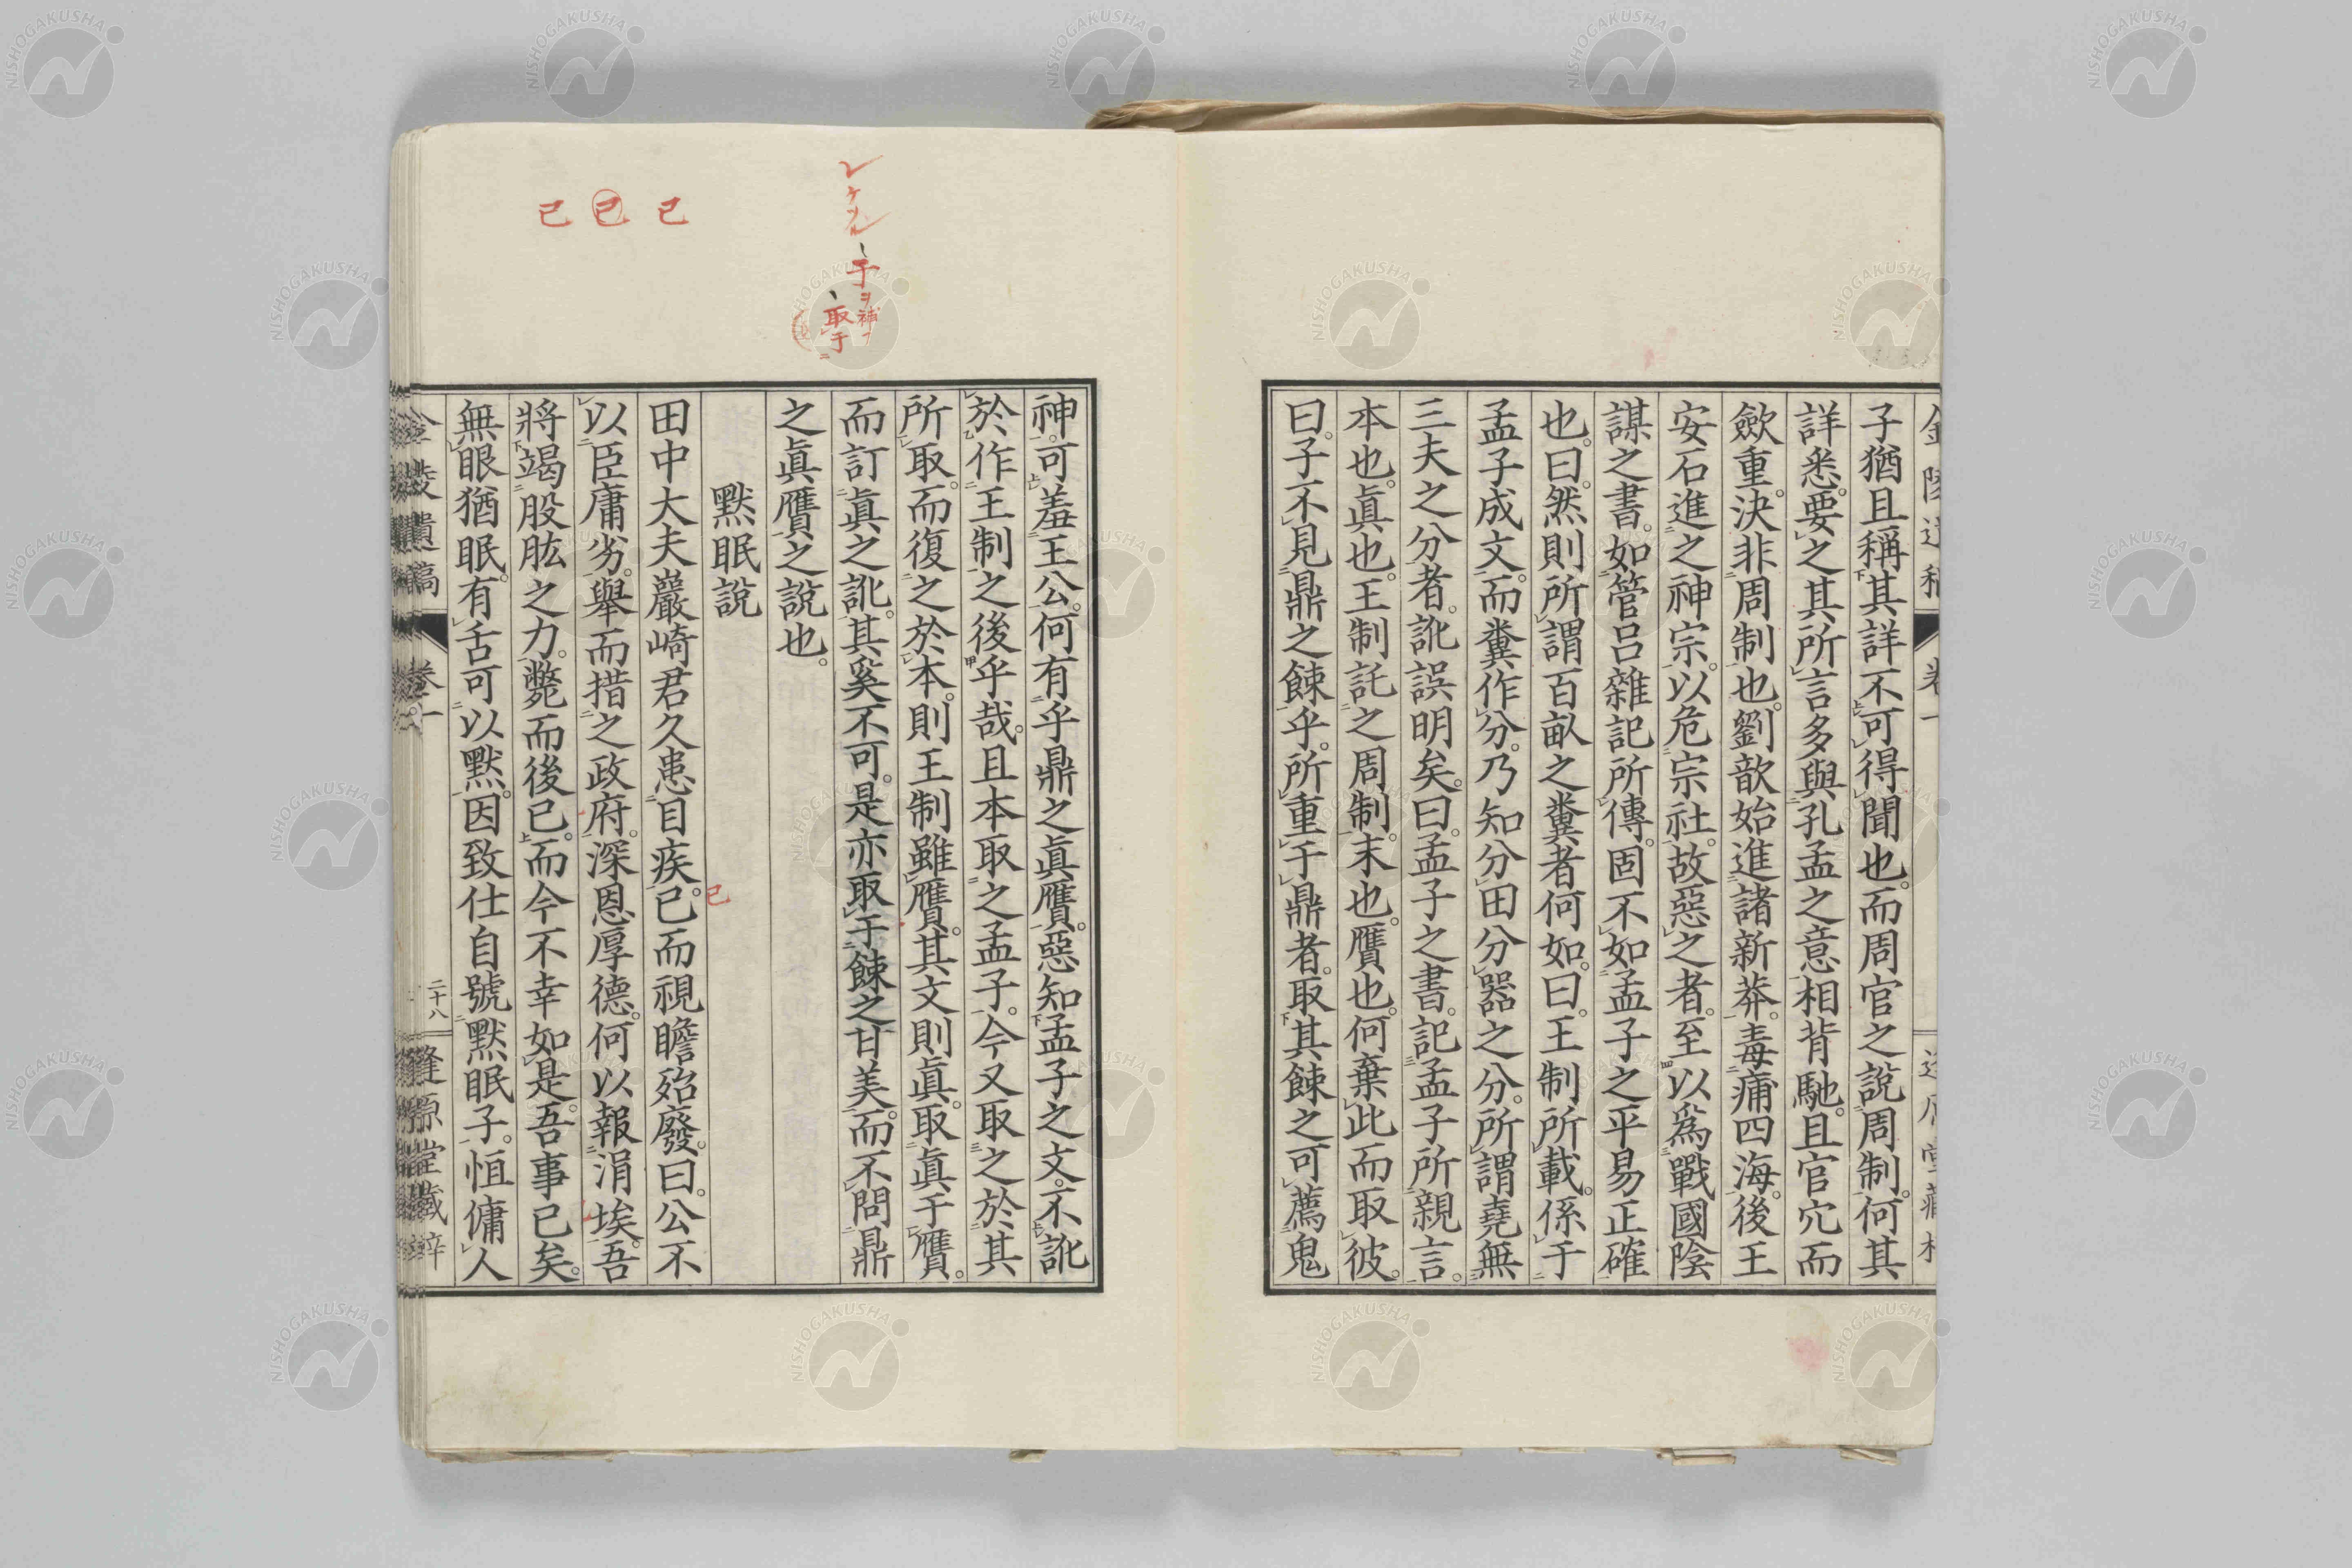 子猶且稱其詳不可得聞也。而周官之說周制。何其
詳悉。要之其所言多與孔孟之意相背馳。且官冗而
斂重。決非周制也。劉歆始進諸新莽。毒痡四海。後王
安石進之神宗。以危宗社。故惡之者。至以爲戰國陰
謀之書。如管呂雜記所傳。固不如孟子之平易正確
也。曰。然則所謂百畝之糞者何如。曰。王制所載。係于
孟子成文。而糞作分。乃知分田分器之分。所謂堯無
三夫之分者。訛誤明矣。曰。孟子之書。記孟子所親言。
本也。眞也。王制託之周制。末也。贋也。何棄此而取彼。
曰。子不見鼎之餗乎。所重于鼎者。取其餗之可薦鬼
神。可羞王公。何有乎鼎之眞贋。惡知孟子之文。不訛
於作王制之後乎哉。且本取之孟子。今又取之於其
所取。而復之於本。則王制雖贋。其文則眞。取眞于贋。
而訂眞之訛。其奚不可。是亦取于餗之甘美。而不問鼎
之眞贋之說也。
默眠說
田中大夫巖崎君久患目疾。已而視瞻殆廢。曰。公不
以臣庸劣。舉而措之政府。深恩厚德。何以報涓埃。吾
將竭股肱之力。斃而後已。而今不幸如是。吾事已矣。
無眼猶眠。有舌可以默。因致仕自號默眠子。恒傭人
卷一
二十八
レケヌル
于ヲ補フ
取于二
已
已
已
已
NISHOGAKUSHA